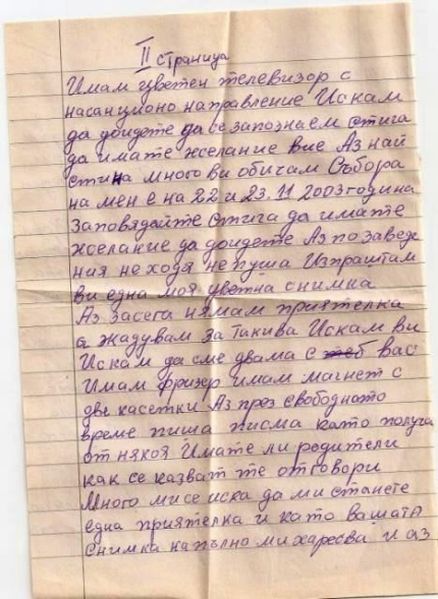 II страница
Имам цветен телевизор с
насанционо направление Искам
да дойдете да се запознаем стига
да имате желание вие Аз най
стина много ви обичам Събора
на мен е на 22 и 23.11 2003 година
Заповядайте стига да имате
желание да дойдете Аз по заведе
ния не ходя не пуша Изпраштам
ви една моя цветна снимка
Аз засега нямам приятелка
а жадувам за такива Искам ви
Искам да сме двама с Вас
Имам фризер имам магнет с
две касетки Аз през свободното
време пиша писма като получа
от някоя Имате ли родители
как се казват те отговори
Много ми се иска да ми станете
една приятелка и като вашата
снимка напълно ми харесва и аз